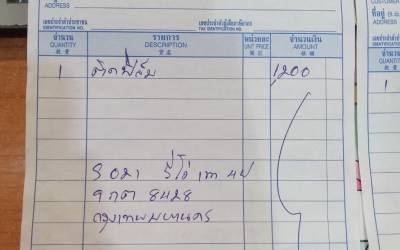 ADDRESS
เลขประจำตัวประชาชน
IDENTIFICATION NO.
เลขประจำตัวผู้เสียภาษีอากร
TAX IDENTIFICATION NO.
จำนวน รายการ หน่วยละ จำนวนเงิน
QUANTITY DESCRIPTION UNIT PRICE AMOUNT
1 ติดฟิล์ม 1,200
รีโว่
9 กด 8428
กรุงเทพมหานคร
CUSTOMER
ที่อยู่
ADDRESS
จำนวน
QUANTITY
1